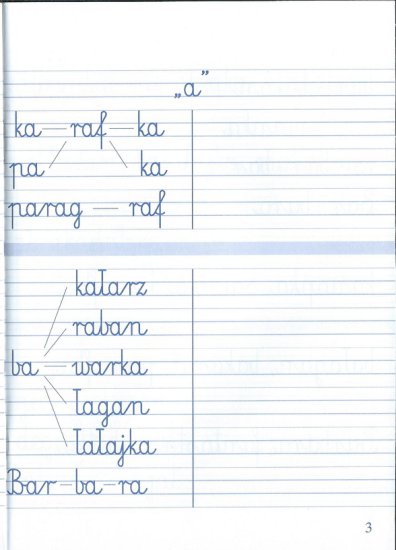 „a”
ka — raf — ka
pa ka
parag — raf
kałarz
raban
ba — warka
łagan
łałajka
Bar-ba-ra
3